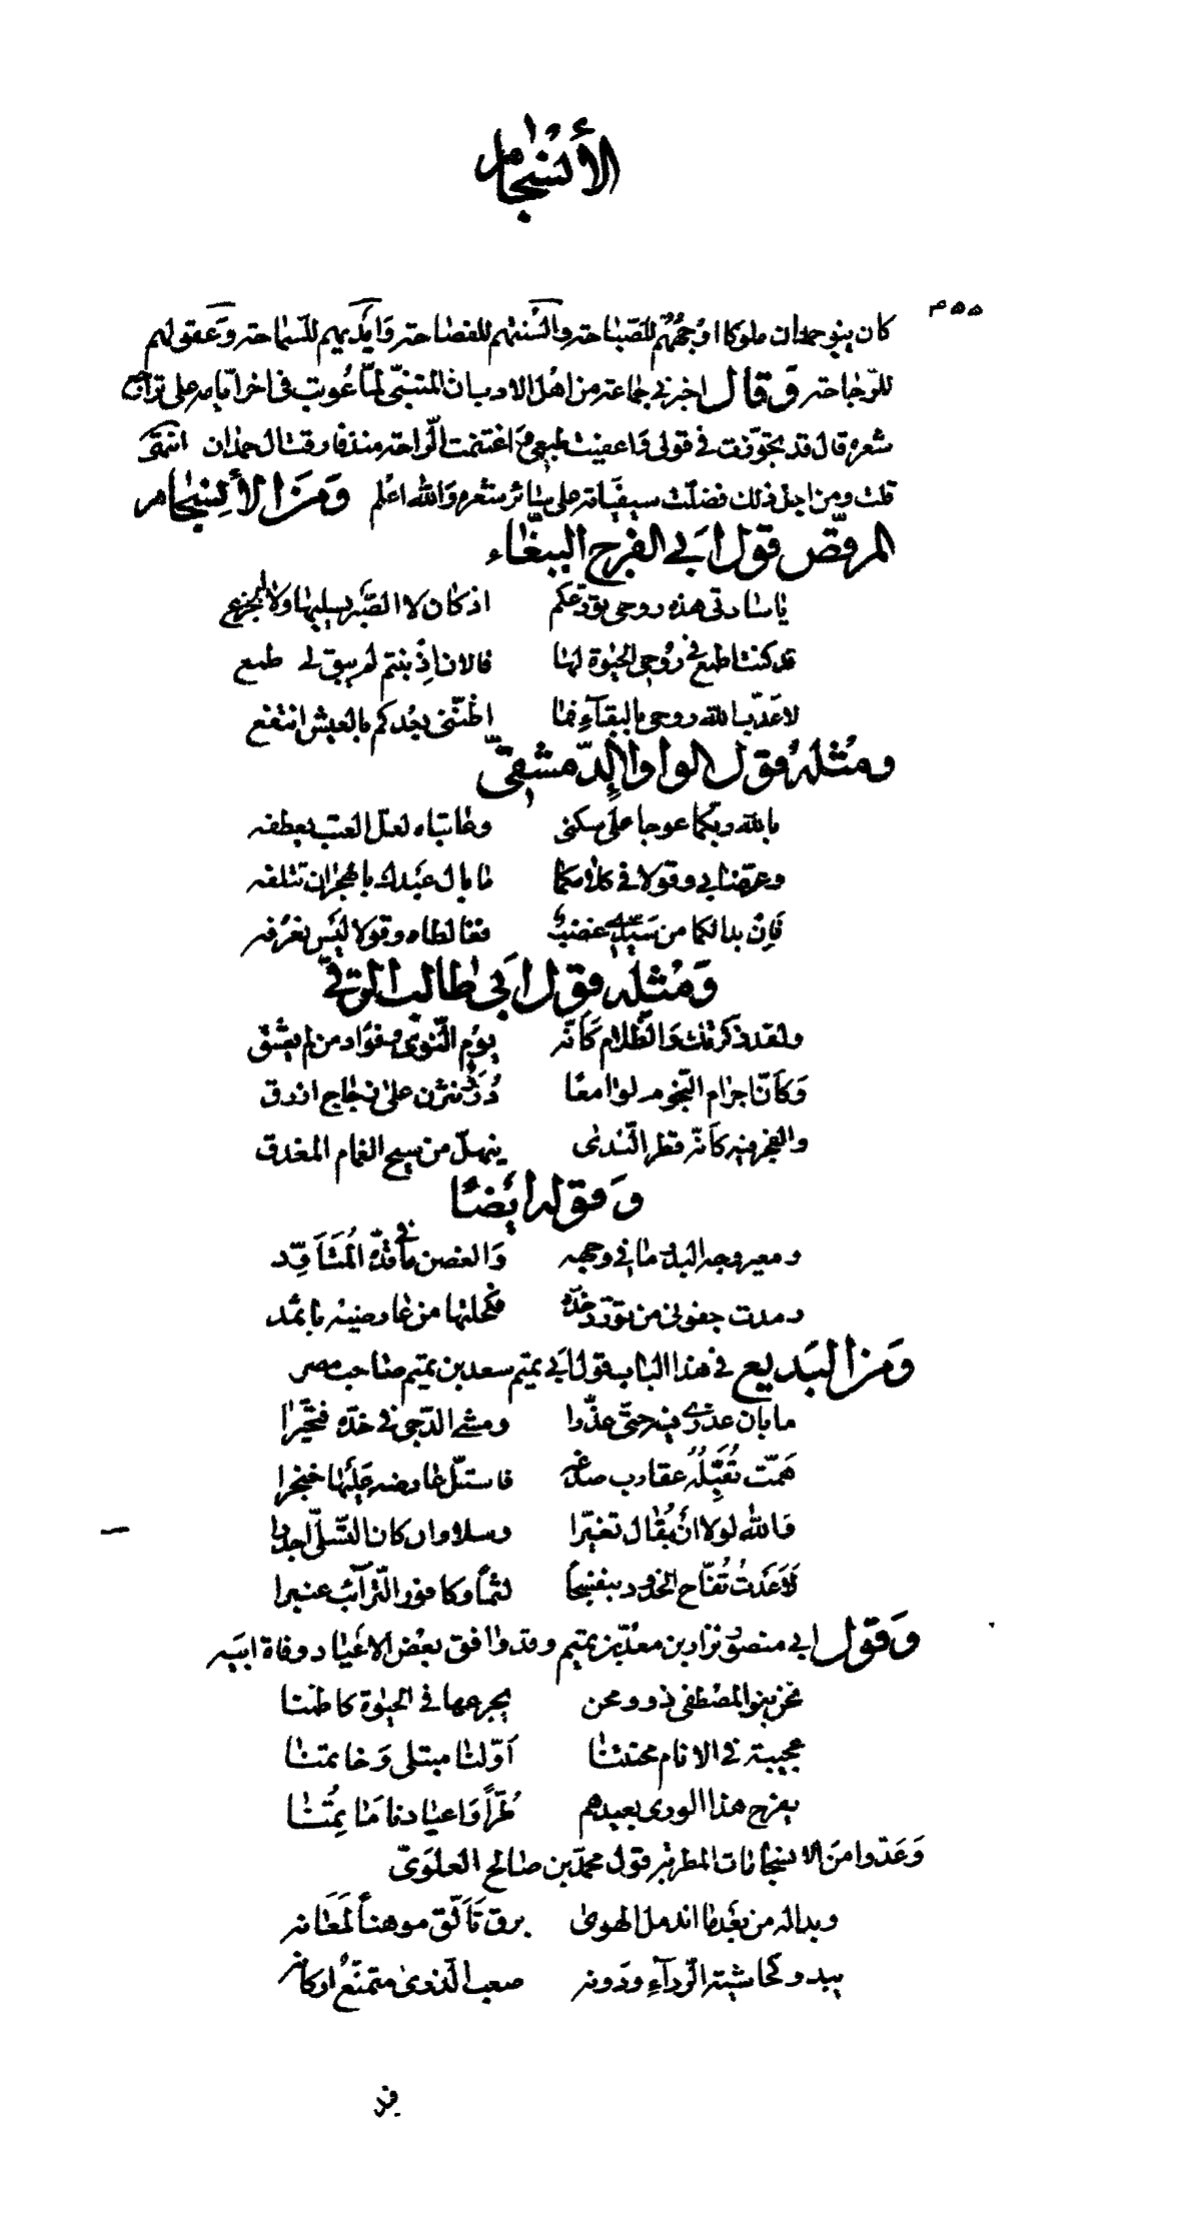 الأنسجام
٤٥٥
كان بنو حمدان ملوكا اوجههم للصباحة والسنتهم للفصاحة وايديهم للسماحة وعقولهم
للرجاحة وقال اخبرني جماعة من اهل الادب ان المتنبي لما عوتب في اخر ايامه على تراجع
شعره قال قد تجوزت في قولي واعفيت طبعي واغتنمت الراحة منذ فارقت ال حمدان انتهى
قلت ومن اجل ذلك فضلت سيفياته على سائر شعره والله اعلم ومن الأنسجام
المرقص قول ابي الفرج الببغاء
يا سادتي هذه روحي تودعكم اذ كان لا الصبر يسليها ولا الجزع
قد كنت اطمع في روح الحيوة لها فالان اذ بنتم لم يبق لي طمع
لا عذب الله روحي بالبقآء فما اظنني بعدكم بالعيش انتفع
ومثله قول الواوا الدمشقي
بالله ربكما عوجا على سكني وعاتباه لعل العتب يعطفه
وعرضا بي وقولا في كلامكما ما بال عبدك بالهجران تتلفه
فان بدا لكما من سيدي غضب فغالطاه وقولا ليس نعرفه
ومثله قول ابي طالب الرقي
ولقد ذكرتك والظلام كانه يوم النوى وفؤاد من لم يعشق
وكان اجرام النجوم لوامعا درر نثرن على زجاج ازرق
والفجر فيه كانه قطر الندى ينهل من سيح الغمام المغدق
وقوله ايضا
ومعير وجه البدر ما في وجهه والغصن ما في قده المتاود
رمدت جفوني من تورد خده فكحلتها من عارضيه باثمد
ومن البديع في هذا الباب قول ابي تميم سعد بن تميم صاحب مصر
ما بان عذري فيه حتى عذرا ومشى الدجى في خده فتحيرا
همت تقبله عقارب صدغه فاستل عارضه عليها خنجرا
والله لولا ان يقال تغيرا وسلا وان كان التسلي اجدرا
لاعدت تفاح الخدود بنفسجا لثما وكافور الترآئب عنبرا
وقول ابي منصور نزار بن معد بن تميم وقد وافق بعض الاعياد وفاة ابيه
نحن بنو المصطفى ذوو محن يجرعها في الحيوة كاظمنا
عجيبة في الانام محنتنا اولنا مبتلى وخاتمنا
يفرح هذا الورى بعيدهم طرا واعيادنا مآتمنا
وعدوا من الانسجامات المطربة قول محمد بن صالح العلوي
وبدا له من بعد ما اندمل الهوى برق تالق موهنا لمعانه
يبدو كحاشية الردآء ودونه صعب الذرى متمنع اركانه